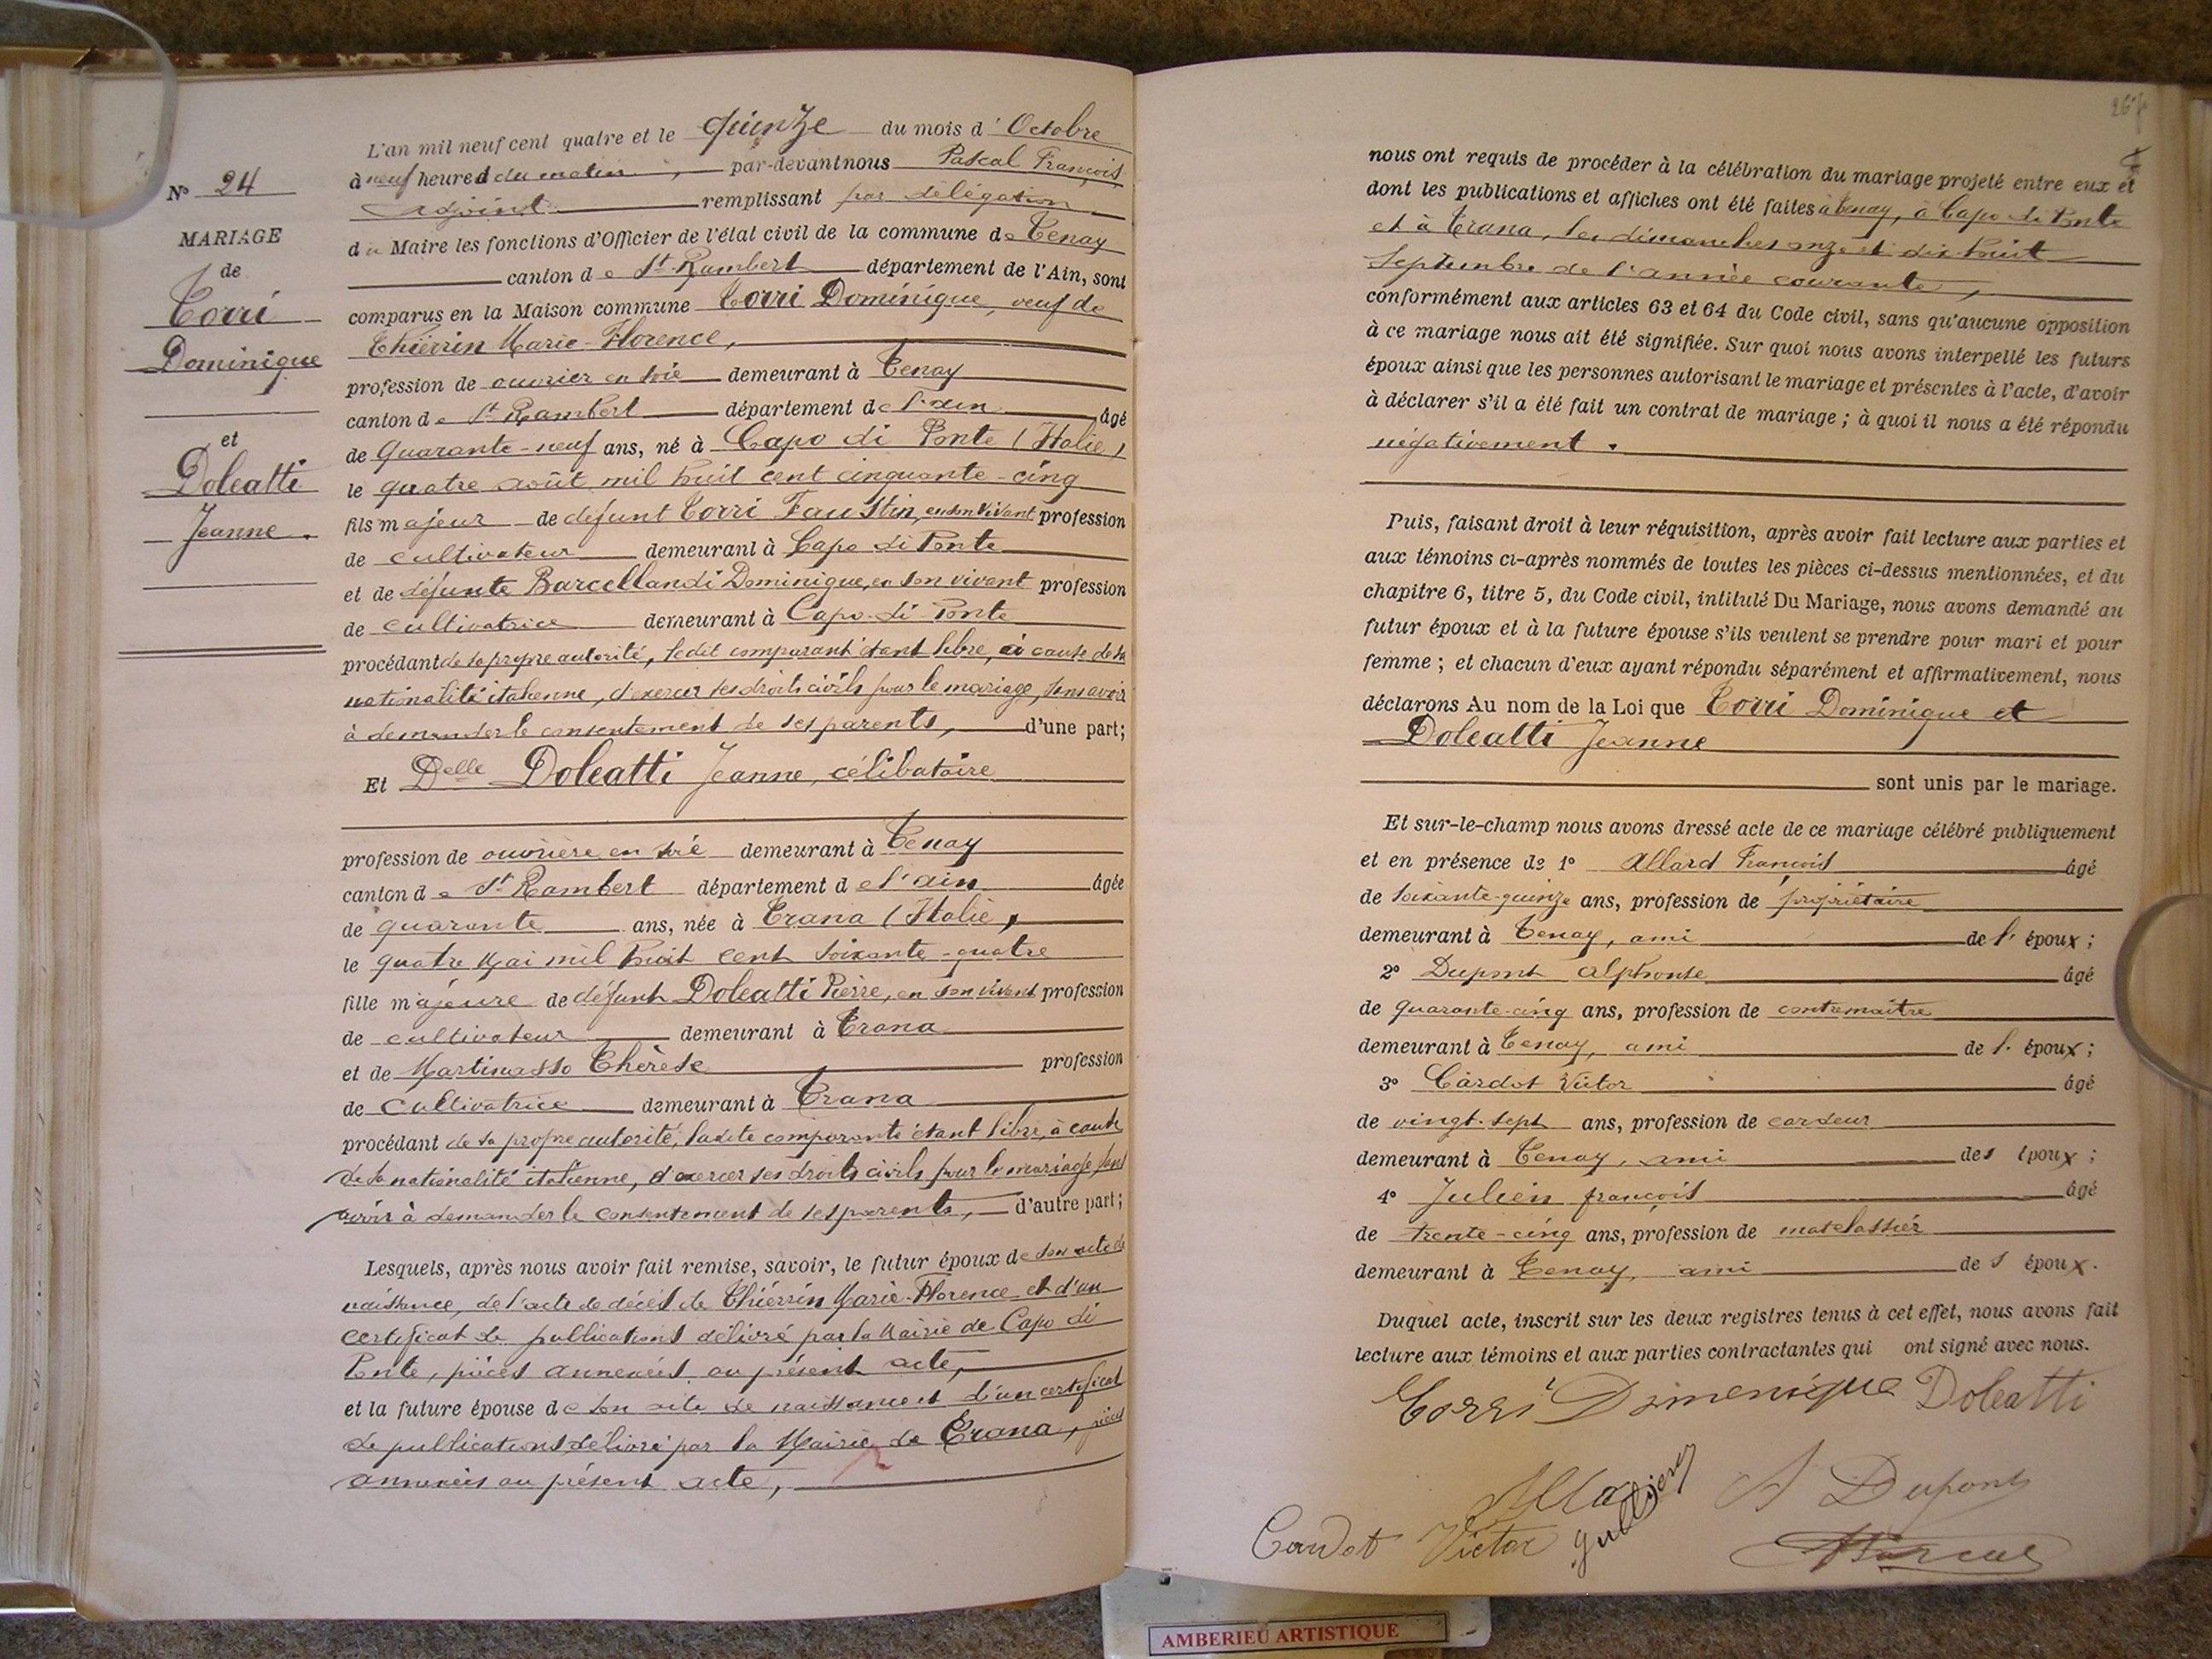 L'an mil neuf cent quatre et le quinze du mois d'Octobre
à neuf heures du matin, par-devant nous Pascal François
Adjoint remplissant par délégation
du Maire les fonctions d'Officier de l'état civil de la commune de Tenay
canton de St Rambert département de l'Ain, sont
comparus en la Maison commune Torri Dominique, veuf de
Thiérrin Marie-Florence,
profession de ouvrier en soie demeurant à Tenay
canton de St Rambert département de l'ain âgé
de Quarante-neuf ans, né à Capo di Ponte (Italie)
le quatre août mil huit cent cinquante-cinq
fils majeur de défunt Torri Faustin, en son vivant profession
de cultivateur demeurant à Capo di Ponte
et de défunte Barcellandi Dominique, en son vivant profession
de cultivatrice demeurant à Capo-di-Ponte
procédant de sa propre autorité, ledit comparant étant libre, à cause de sa
nationalité italienne, d'exercer ses droits civils pour le mariage, sans avoir
à demander le consentement de ses parents, d'une part;
Et Delle Doleatti Jeanne, célibataire
profession de ouvrière en soie demeurant à Tenay
canton de St Rambert département de l'ain âgée
de quarante ans, née à Trana (Italie)
le quatre Mai mil huit cent soixante-quatre
fille majeure de défunt Doleatti Pierre, en son vivant profession
de cultivateur demeurant à Trana
et de Martinasso Thérèse profession
de cultivatrice demeurant à Trana
procédant de sa propre autorité, ladite comparante étant libre, à cause
de sa nationalité italienne, d'exercer ses droits civils pour le mariage sans
avoir à demander le consentement de ses parents, d'autre part;
Lesquels, après nous avoir fait remise, savoir, le futur époux de son acte de
naissance, de l'acte de décès de Thiérrin Marie-Florence et d'un
certificat de publications délivré par la Mairie de Capo di
Ponte, pièces annexées au présent acte,
et la future épouse de son acte de naissance et d'un certificat
de publications délivré par la Mairie de Trana, pièces
annexées au présent acte,
N° 24
MARIAGE
de
Torri
Dominique
et
Doleatti
Jeanne.
nous ont requis de procéder à la célébration du mariage projeté entre eux et
dont les publications et affiches ont été faites à Tenay, à Capo di Ponte
et à Trana, les dimanches onze et dix-huit
Septembre de l'année courante,
conformément aux articles 63 et 64 du Code civil, sans qu'aucune opposition
à ce mariage nous ait été signifiée. Sur quoi nous avons interpellé les futurs
époux ainsi que les personnes autorisant le mariage et présentes à l'acte, d'avoir
à déclarer s'il a été fait un contrat de mariage; à quoi il nous a été répondu
négativement.
Puis, faisant droit à leur réquisition, après avoir fait lecture aux parties et
aux témoins ci-après nommés de toutes les pièces ci-dessus mentionnées, et du
chapitre 6, titre 5, du Code civil, intitulé Du Mariage, nous avons demandé au
futur époux et à la future épouse s'ils veulent se prendre pour mari et pour
femme; et chacun d'eux ayant répondu séparément et affirmativement, nous
déclarons Au nom de la Loi que Torri Dominique et
Doleatti Jeanne
sont unis par le mariage.
Et sur-le-champ nous avons dressé acte de ce mariage célébré publiquement
et en présence de 1° Allard François âgé
de soixante-quinze ans, profession de propriétaire
demeurant à Tenay, ami de l'époux;
2° Dupont Alphonse âgé
de quarante-cinq ans, profession de contremaître
demeurant à Tenay, ami de l'époux;
3° Cardot Victor âgé
de vingt-sept ans, profession de cardeur
demeurant à Tenay, ami des époux;
4° Julien françois âgé
de trente-cinq ans, profession de matelassier
demeurant à Tenay, ami des époux.
Duquel acte, inscrit sur les deux registres tenus à cet effet, nous avons fait
lecture aux témoins et aux parties contractantes qui ont signé avec nous.
Torri Dimenique Doleatti
A Dupont
Cardot Victor
AMBERIEU ARTISTIQUE